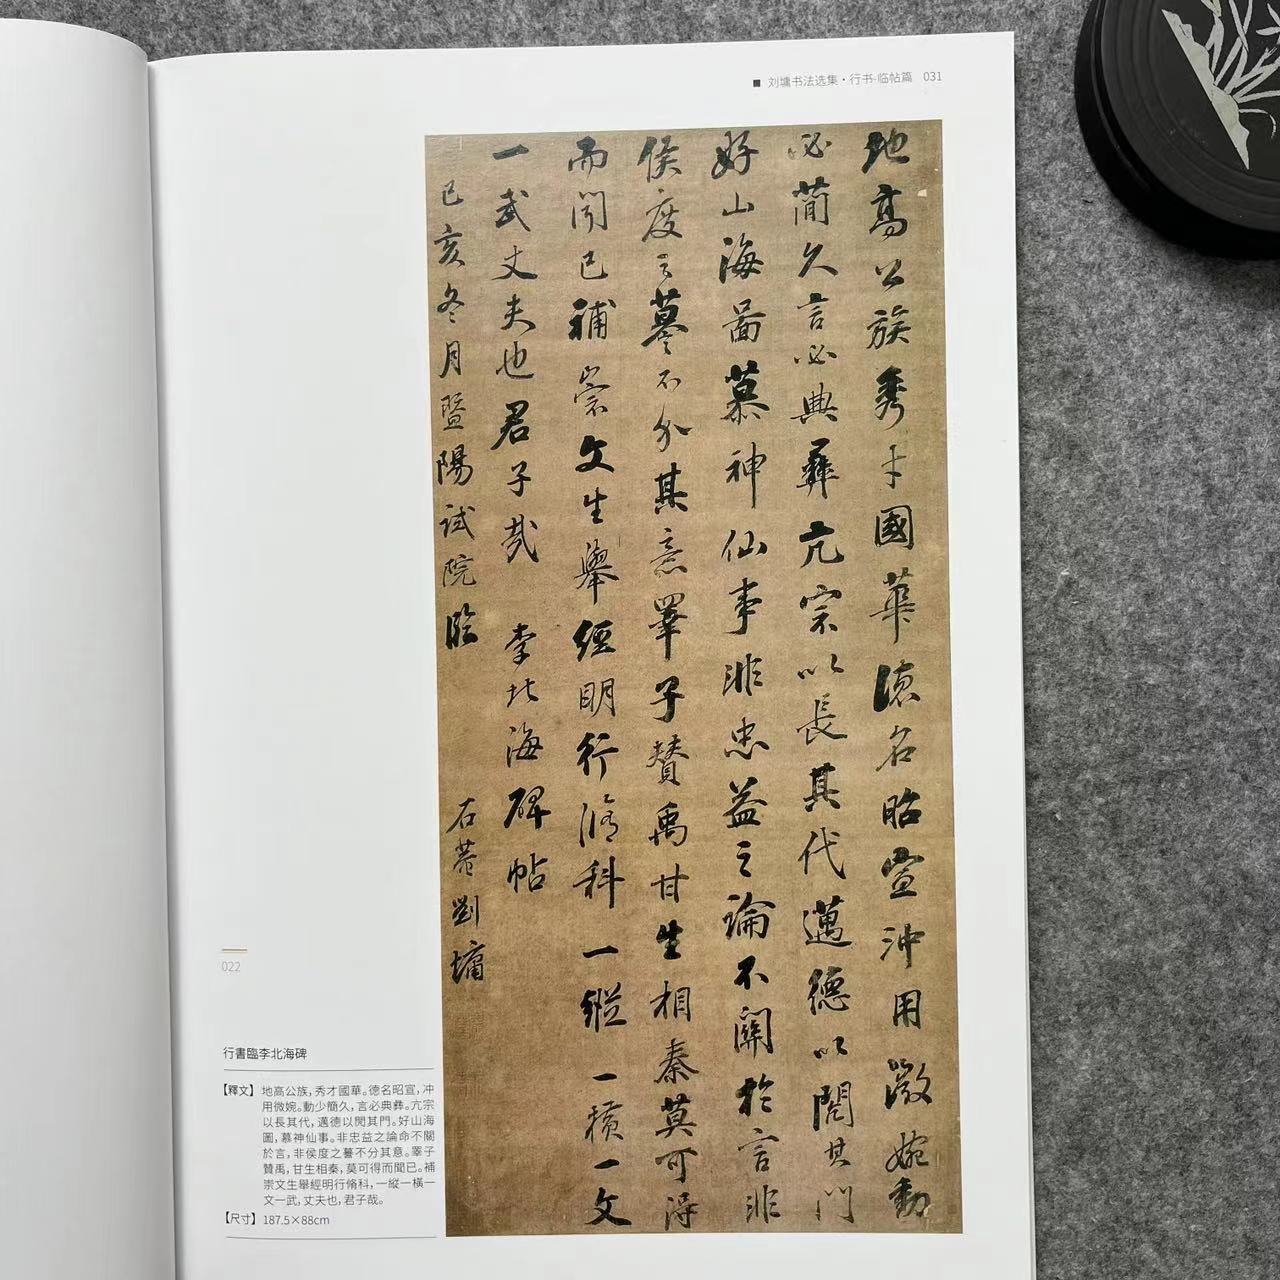 ■ 刘墉书法选集·行书·临帖篇 031
地高公族秀才國華德名昭宣沖用微婉動
必簡久言必典彝亢宗以長其代邁德以閱其門
好山海圖慕神仙事非忠益之論不關於言非
侯度之謩不分其意睪子贊禹甘生相秦莫可得
而聞已補崇文生舉經明行脩科一縱一橫一文
一武丈夫也君子哉 李北海碑帖
己亥冬月暨陽試院臨 石菴劉墉
022
行書臨李北海碑
【釋文】地高公族，秀才國華。德名昭宣，冲
用微婉。動少簡久，言必典彝。亢宗
以長其代，邁德以閱其門。好山海
圖，慕神仙事。非忠益之論命不關
於言，非侯度之謩不分其意。睪子
贊禹，甘生相秦，莫可得而聞已。補
崇文生舉經明行脩科，一縱一橫一
文一武，丈夫也，君子哉。
【尺寸】187.5×88cm